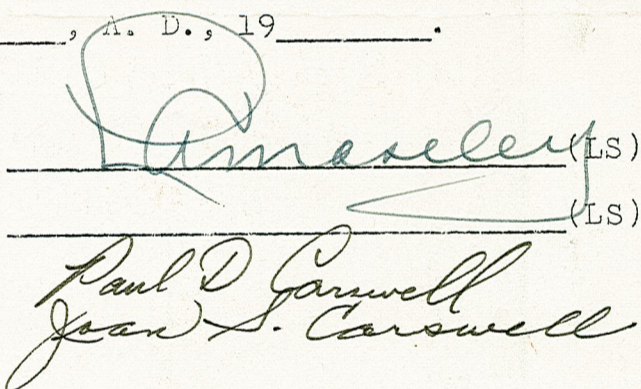 , A. D., 19 .
Moseley (LS)
(LS)
Paul D Carswell
Joan S. Carswell